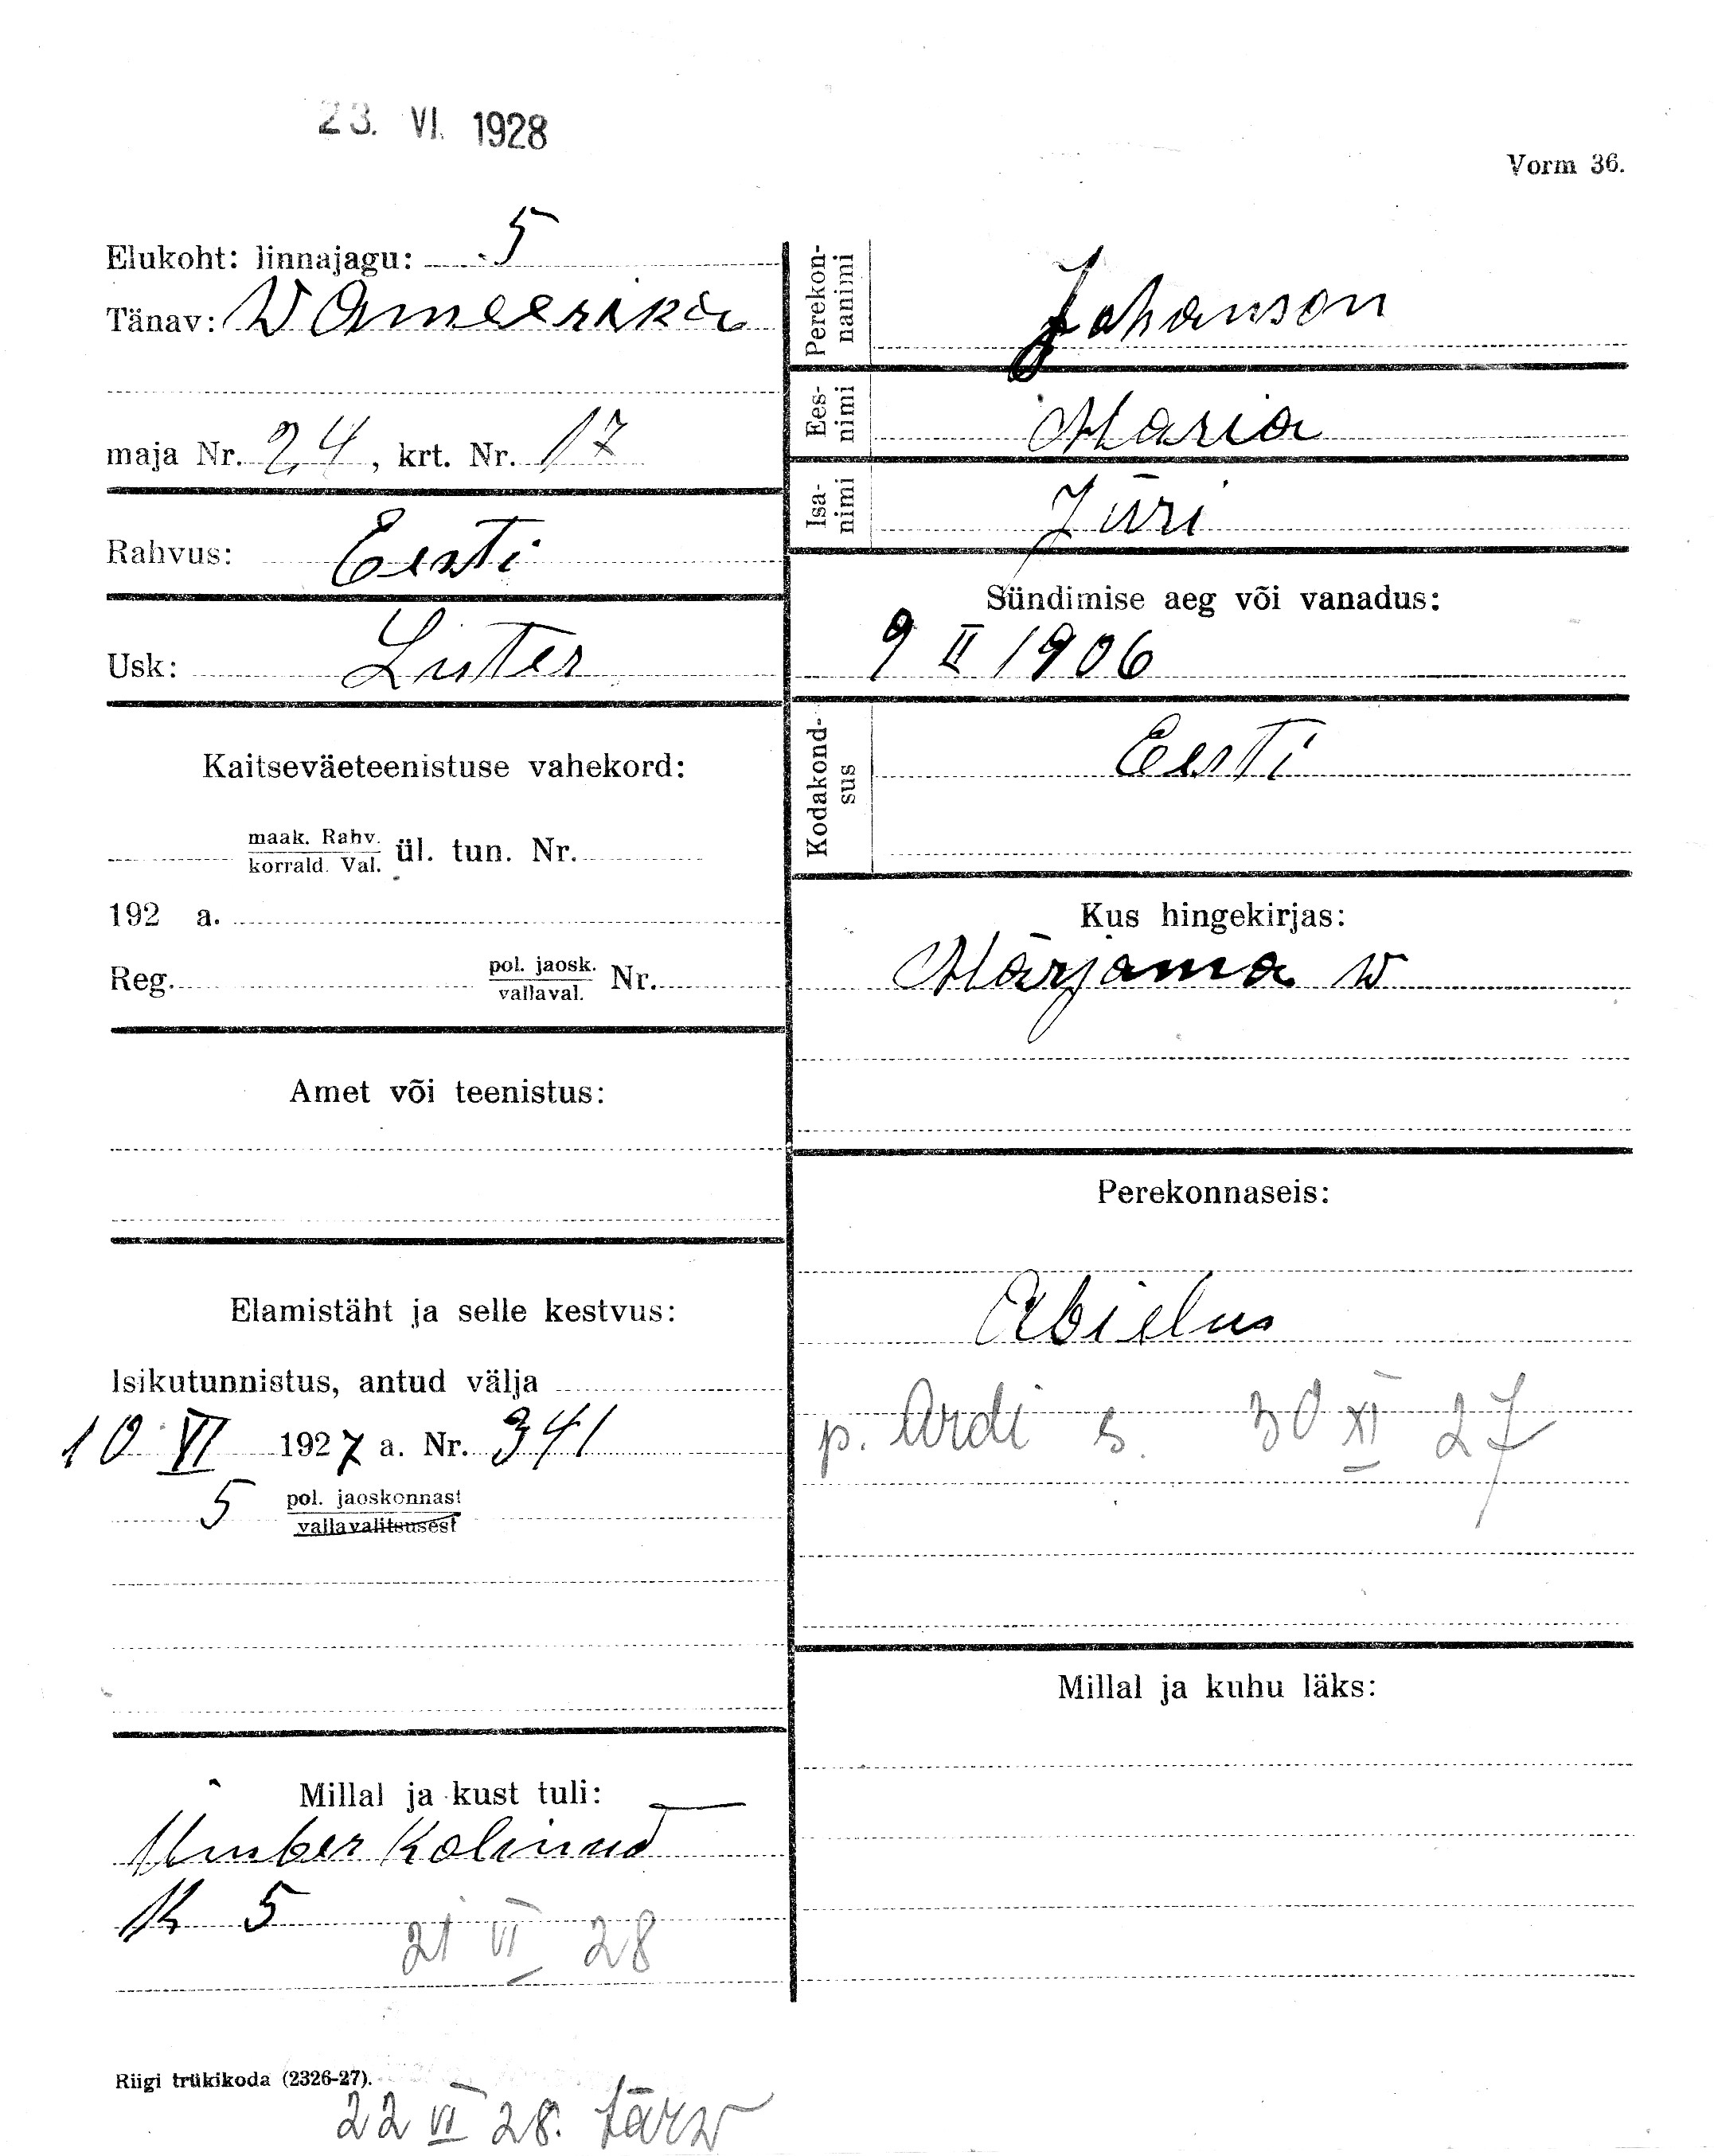 23. VI. 1928
Vorm 36.
Elukoht: linnajagu: 5
Tänav: W Ameerika
maja Nr. 24, krt. Nr. 17
Rahvus: Eesti
Usk: Luter
Kaitseväeteenistuse vahekord:
maak. Rahv.
korrald. Val. ül. tun. Nr.
192 a.
Reg. pol. jaosk. Nr.
vallaval.
Amet või teenistus:
Elamistäht ja selle kestvus:
Isikutunnistus, antud välja
10 VI 1927 a. Nr. 341
5 pol. jaoskonnast
vallavalitsusest
Millal ja kust tuli:
Ümber Kolinud
K 5
21 VI 28
Perekonnanimi
Johanson
Eesnimi
Maria
Isanimi
Jüri
Sündimise aeg või vanadus:
9 II 1906
Kodakondsus
Eesti
Kus hingekirjas:
Märjama w
Perekonnaseis:
Abielus
p. Ardi s. 30 XI 27
Millal ja kuhu läks:
Riigi trükikoda (2326-27).
22 VI 28.